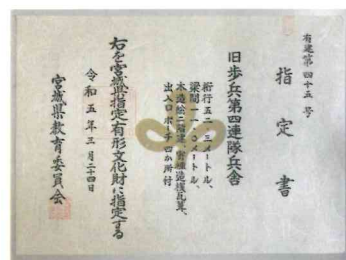 有建第四十五号
指定書
旧歩兵第四連隊兵舎
桁行五二・三メートル、
梁間一一・〇メートル、
木造総二階建、寄棟造桟瓦葺、
出入口ポーチ四か所付
右を宮城県指定有形文化財に指定する
令和五年三月二十四日
宮城県教育委員会